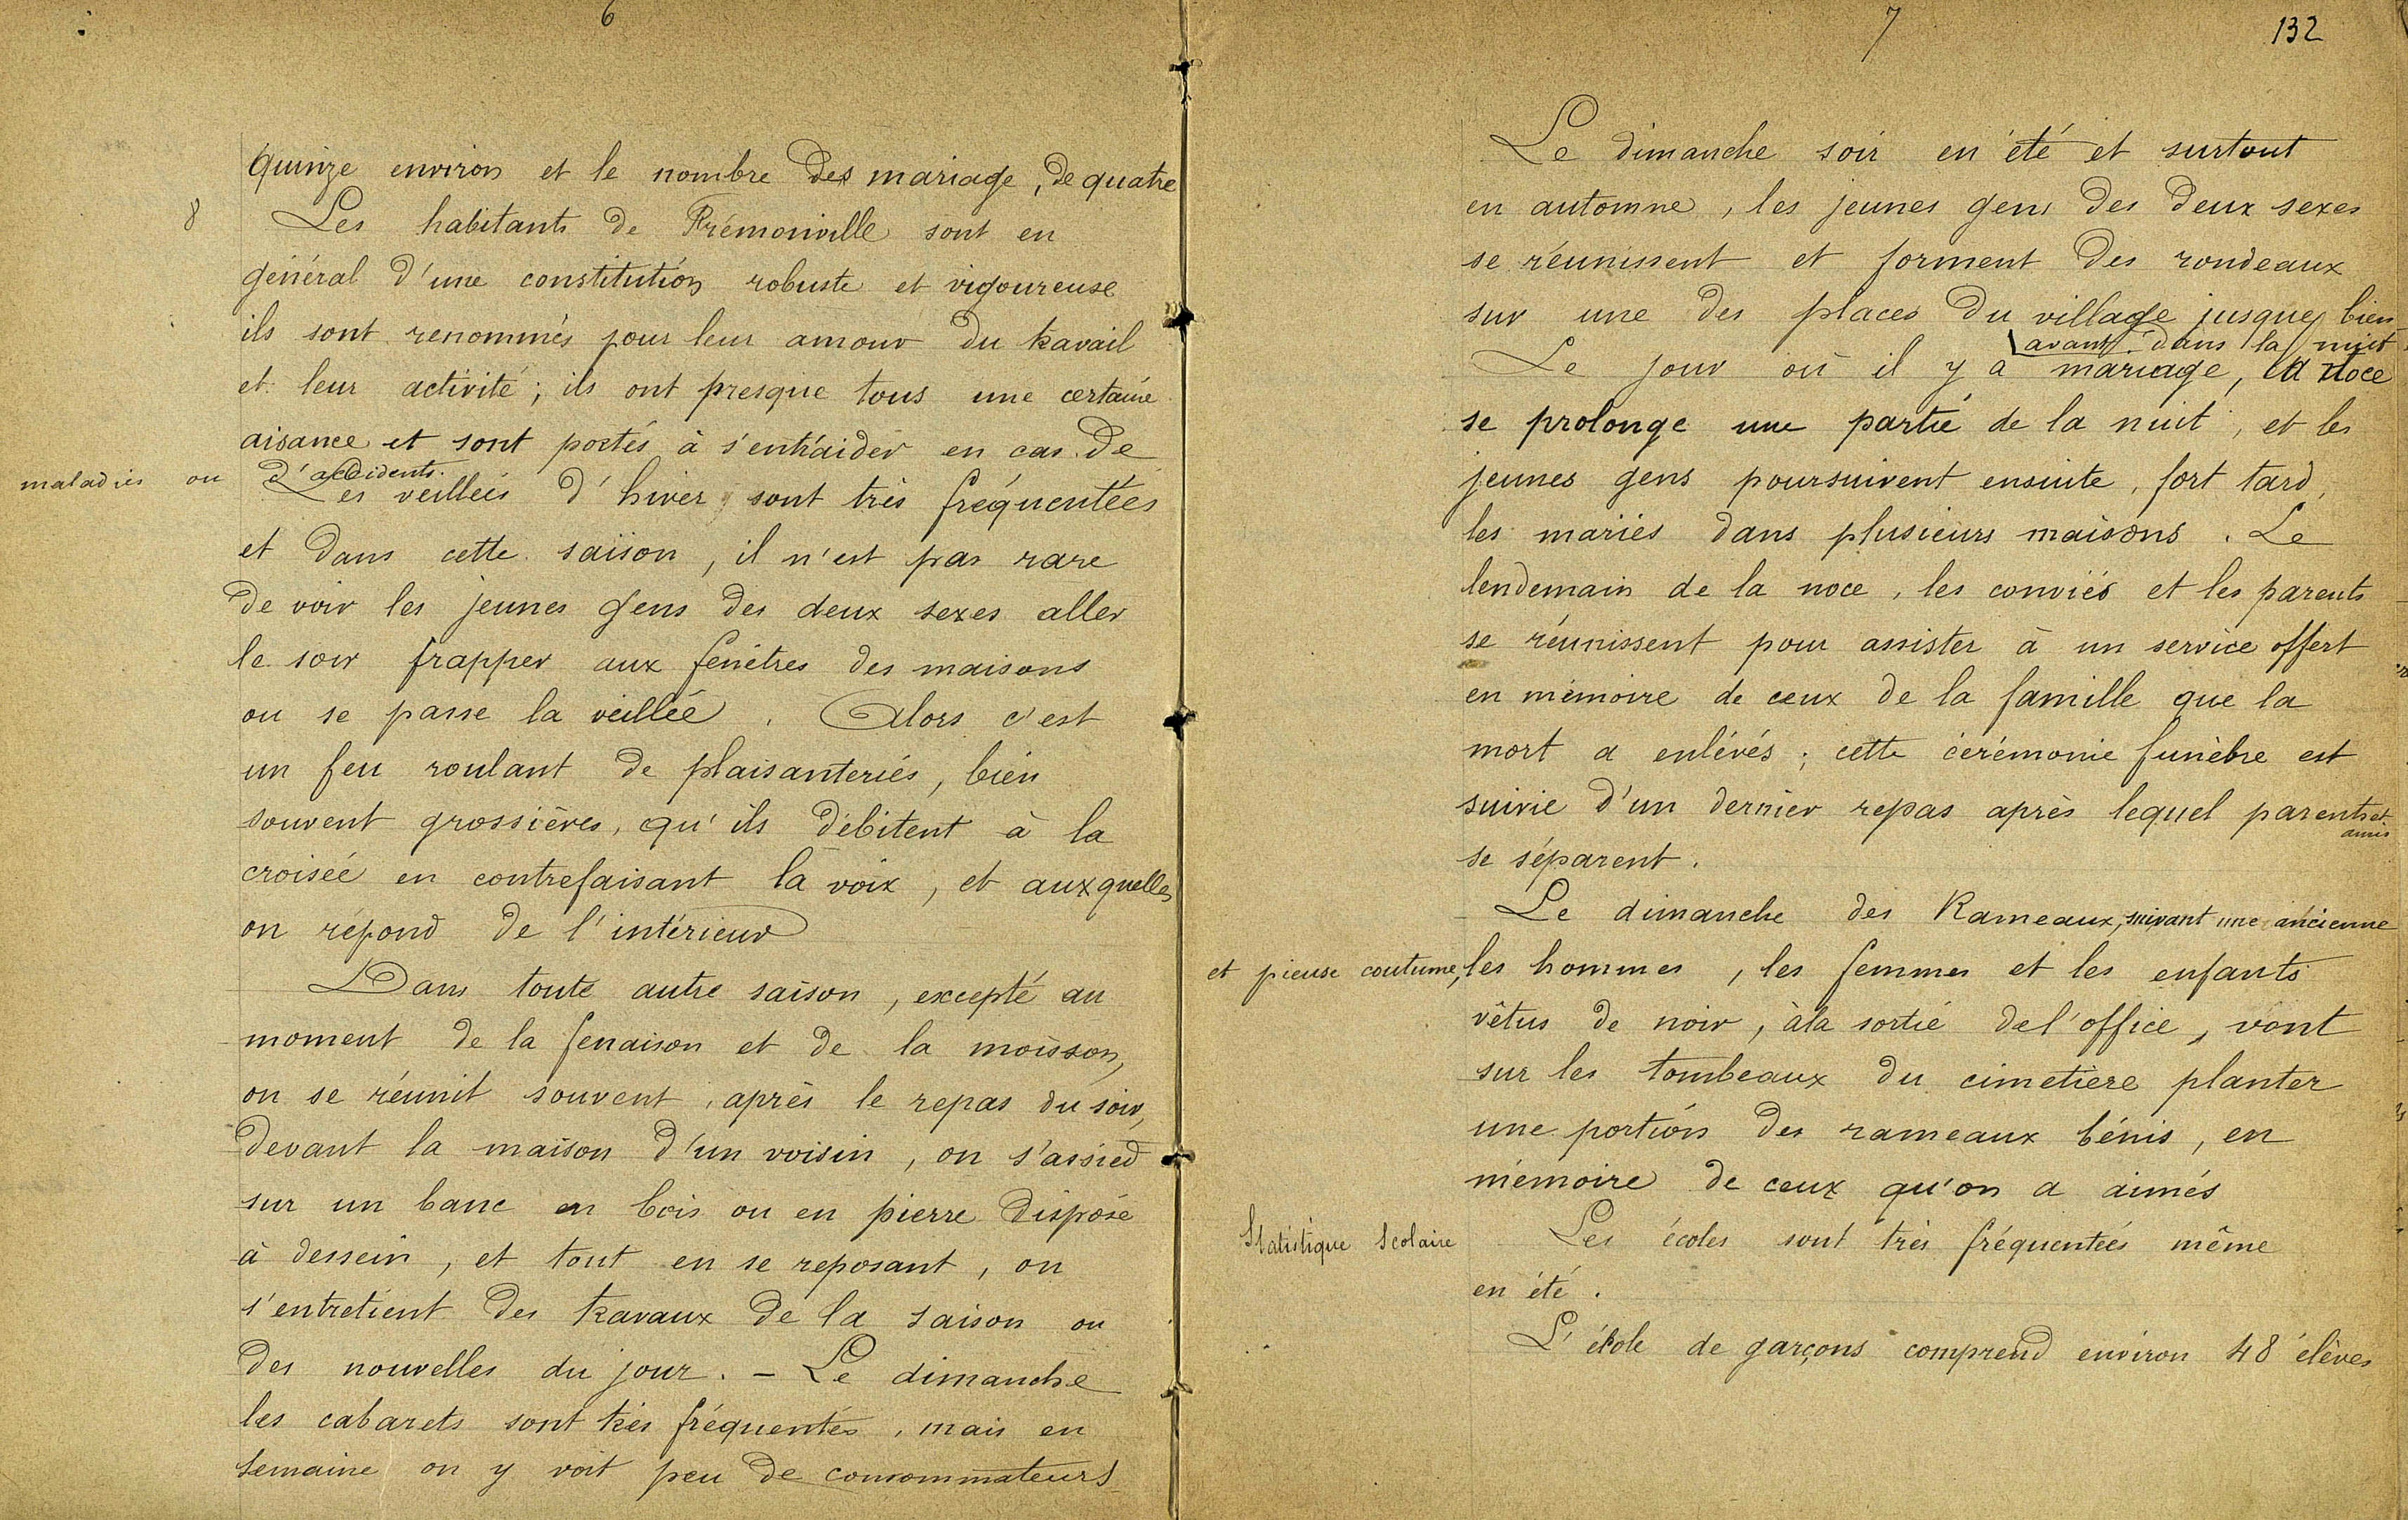 6
quinze environ et le nombre des mariage, de quatre
8
Les habitants de Frémonville sont en
général d'une constitution robuste et vigoureuse
ils sont renommés pour leur amour du travail
et leur activité ; ils ont presque tous une certaine
aisance et sont portés à s'entraider en cas de
maladies ou d'accidents.
Les veillées d'hiver sont très fréquentées
et dans cette saison, il n'est pas rare
de voir les jeunes gens des deux sexes aller
le soir frapper aux fenêtres des maisons
ou se passe la veillée. Alors c'est
un feu roulant de plaisanteries, bien
souvent grossières, qu'ils débitent à la
croisée en contrefaisant la voix, et auxquelles
on répond de l'intérieur
Dans toute autre saison, excepté au
moment de la fenaison et de la moisson,
on se réunit souvent, après le repas du soir,
devant la maison d'un voisin, on s'assied
sur un banc en bois ou en pierre disposé
à dessein, et tout en se reposant, on
s'entretient des travaux de la saison ou
des nouvelles du jour. - Le dimanche
les cabarets sont très fréquentés, mais en
semaine on y voit peu de consommateurs
7
132
Le dimanche soir en été et surtout
en automne, les jeunes gens des deux sexes
se réunissent et forment des rondeaux
sur une des places du village jusque bien
avant dans la nuit.
Le jour où il y a mariage, la noce
se prolonge une partie de la nuit, et les
jeunes gens poursuivent ensuite, fort tard,
les mariés dans plusieurs maisons. Le
lendemain de la noce, les conviés et les parents
se réunissent pour assister à un service offert
en mémoire de ceux de la famille que la
mort a enlévés ; cette cérémonie funèbre est
suivie d'un dernier repas après lequel parents et
amis
se séparent.
Le dimanche des Rameaux, suivant une ancienne
et pieuse coutume, les hommes, les femmes et les enfants
vêtus de noir, à la sortie de l'office, vont
sur les tombeaux du cimetière planter
une portion des rameaux bénis, en
mémoire de ceux qu'on a aimés
Statistique Scolaire
Les écoles sont très fréquentées même
en été.
L'école de garçons comprend environ 48 élèves